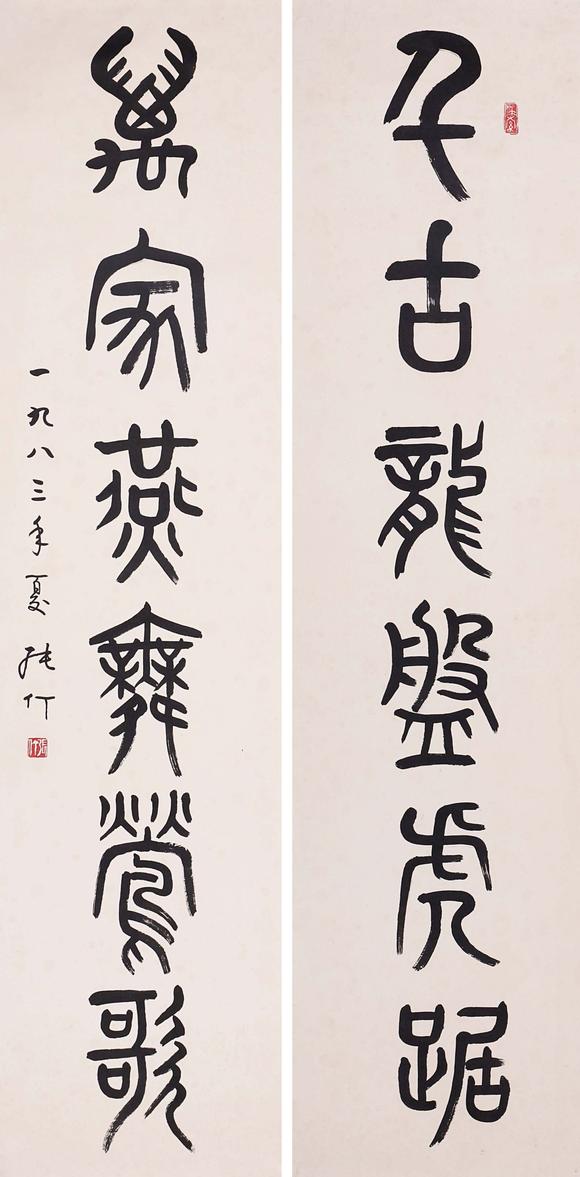 千古龍盤虎踞
萬家燕舞鶯歌
一九八三年夏 張仃
張仃